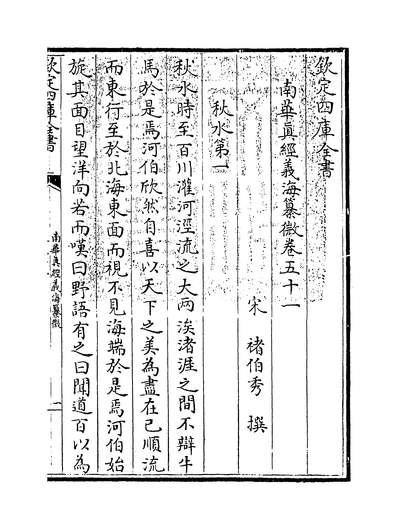 欽定四庫全書
南華真經義海纂微卷五十一
宋 褚伯秀 撰
秋水第一
秋水時至百川灌河涇流之大兩涘渚涯之間不辯牛
馬於是焉河伯欣然自喜以天下之美為盡在已順流
而東行至於北海東面而視不見海端於是焉河伯始
旋其面目望洋向若而嘆曰野語有之曰聞道百以為
欽定四庫全書
南華真經義海纂微
一